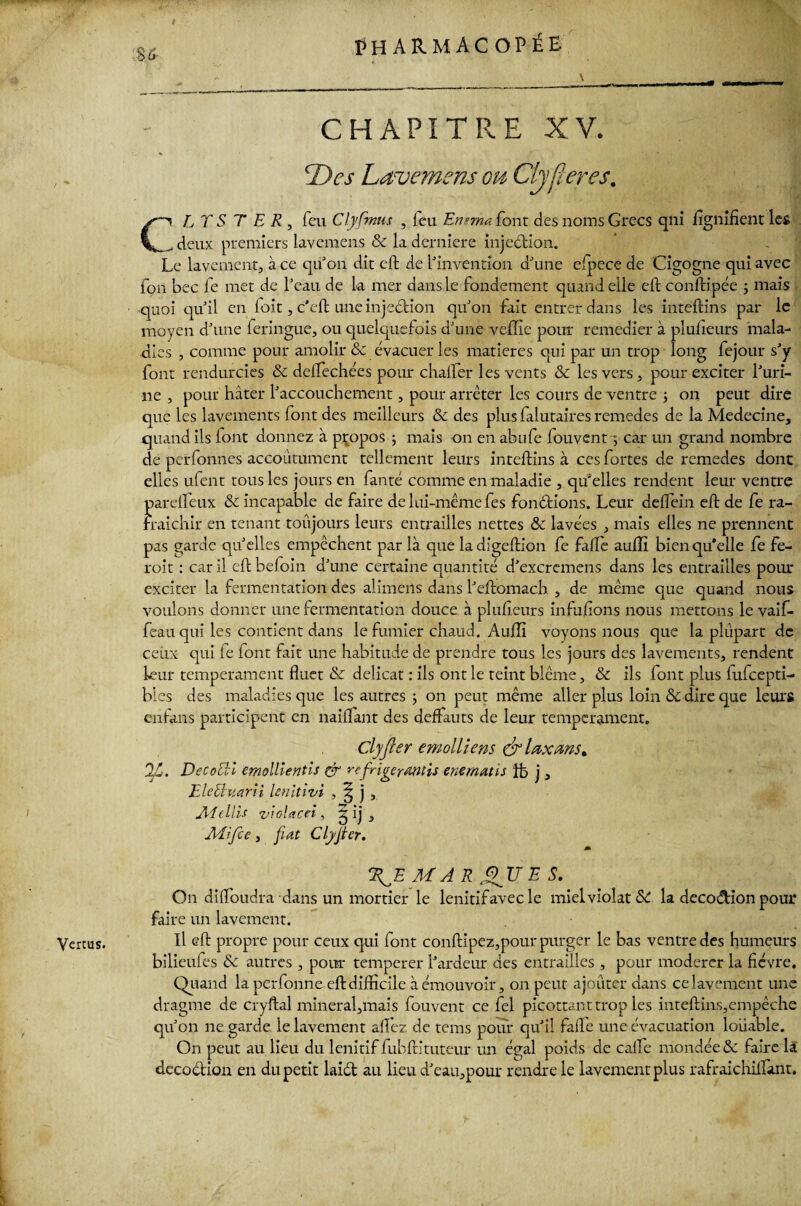 86
PHARMACOPÉE
CHAPITRE XV.
Des Lavemens ou Clyſteres.
CLYSTER, ſeu Clyſmus, ſeu Enema ſont des noms Grecs qni ſignifient les
deux premiers lavemens & la derniere injection.
Le lavement, à ce qu'on dit eſt de l'invention d'une eſpece de Cigogne qui avec
ſon bec ſe met de l'eau de la mer dans le fondement quand elle eſt conſtipée ; mais
quoi qu'il en ſoit, c'eſt une injection qu'on fait entrer dans les inteſtins par le
moyen d'une ſeringue, ou quelquefois d'une veſſie pour remedier à pluſieurs mala-
dies, comme pour amolir & évacuer les matieres qui par un trop long ſejour s'y
ſont rendurcies & deſſechées pour chaſſer les vents & les vers, pour exciter l'uri-
ne, pour hâter l'accouchement, pour arrêter les cours de ventre ; on peut dire
que les lavements ſont des meilleurs & des plus ſalutaires remedes de la Medecine,
quand ils ſont donnez à propos ; mais on en abuſe ſouvent ; car un grand nombre
de perſonnes accoûtument tellement leurs inteſtins à ces ſortes de remedes dont
elles uſent tous les jours en ſanté comme en maladie, qu'elles rendent leur ventre
pareſſeux & incapable de faire de lui-même ſes fonctions. Leur deſſein eſt de ſe ra-
fraichir en tenant toûjours leurs entrailles nettes & lavées, mais elles ne prennent
pas garde qu'elles empêchent par là que la digeſtion ſe faſſe auſſi bien qu'elle ſe fe-
roit : car il eſt beſoin d'une certaine quantité d'excremens dans les entrailles pour
exciter la fermentation des alimens dans l'eſtomach, de même que quand nous
voulons donner une fermentation douce à pluſieurs infuſions nous mettons le vaiſ-
ſeau qui les contient dans le fumier chaud. Auſſi voyons nous que la plûpart de
ceux qui ſe font fait une habitude de prendre tous les jours des lavements, rendent
leur temperament fluet & delicat : ils ont le teint blême, & ils ſont plus ſuſcepti-
bles des maladies que les autres ; on peut même aller plus loin & dire que leurs
enfans participent en naiſſant des deffauts de leur temperament.
Clyſter emolliens & laxans.
℞. Decocti emollientis & refrigerantis enematis ℔ j,
Electuarii lenitivi, ℥ j,
Mellis violacei, ℥ ij,
Miſce, fiat Clyſter.
REMARQUES.
On diſſoudra dans un mortier le lenitif avec le miel violat & la decoction pour
faire un lavement.
Vertus.
Il eſt propre pour ceux qui ſont conſtipez, pour purger le bas ventre des humeurs
bilieuſes & autres, pour temperer l'ardeur des entrailles, pour moderer la fiévre.
Quand la perſonne eſt difficile à émouvoir, on peut ajoûter dans ce lavement une
dragme de cryſtal mineral, mais ſouvent ce ſel picottant trop les inteſtins, empêche
qu'on ne garde le lavement aſſez de tems pour qu'il faſſe une évacuation loüable.
On peut au lieu du lenitif ſubſtituteur un égal poids de caſſe mondée & faire la
decoction en du petit laict au lieu d'eau, pour rendre le lavement plus rafraichiſſant.